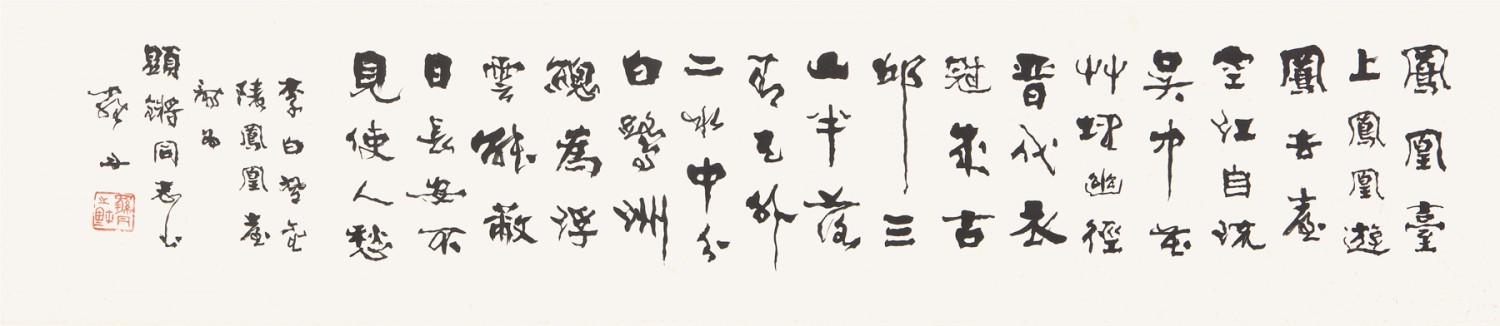 鳳凰臺
上鳳凰遊
鳳去臺
空江自流
吳中花
艸埋幽徑
晉代衣
冠成古
邱三
山半落
青天外
二水中分
白鷺洲
總為浮
雲能蔽
日長安不
見使人愁
李白登金
陵鳳凰臺
詩為
顯鏘同志
羅丹